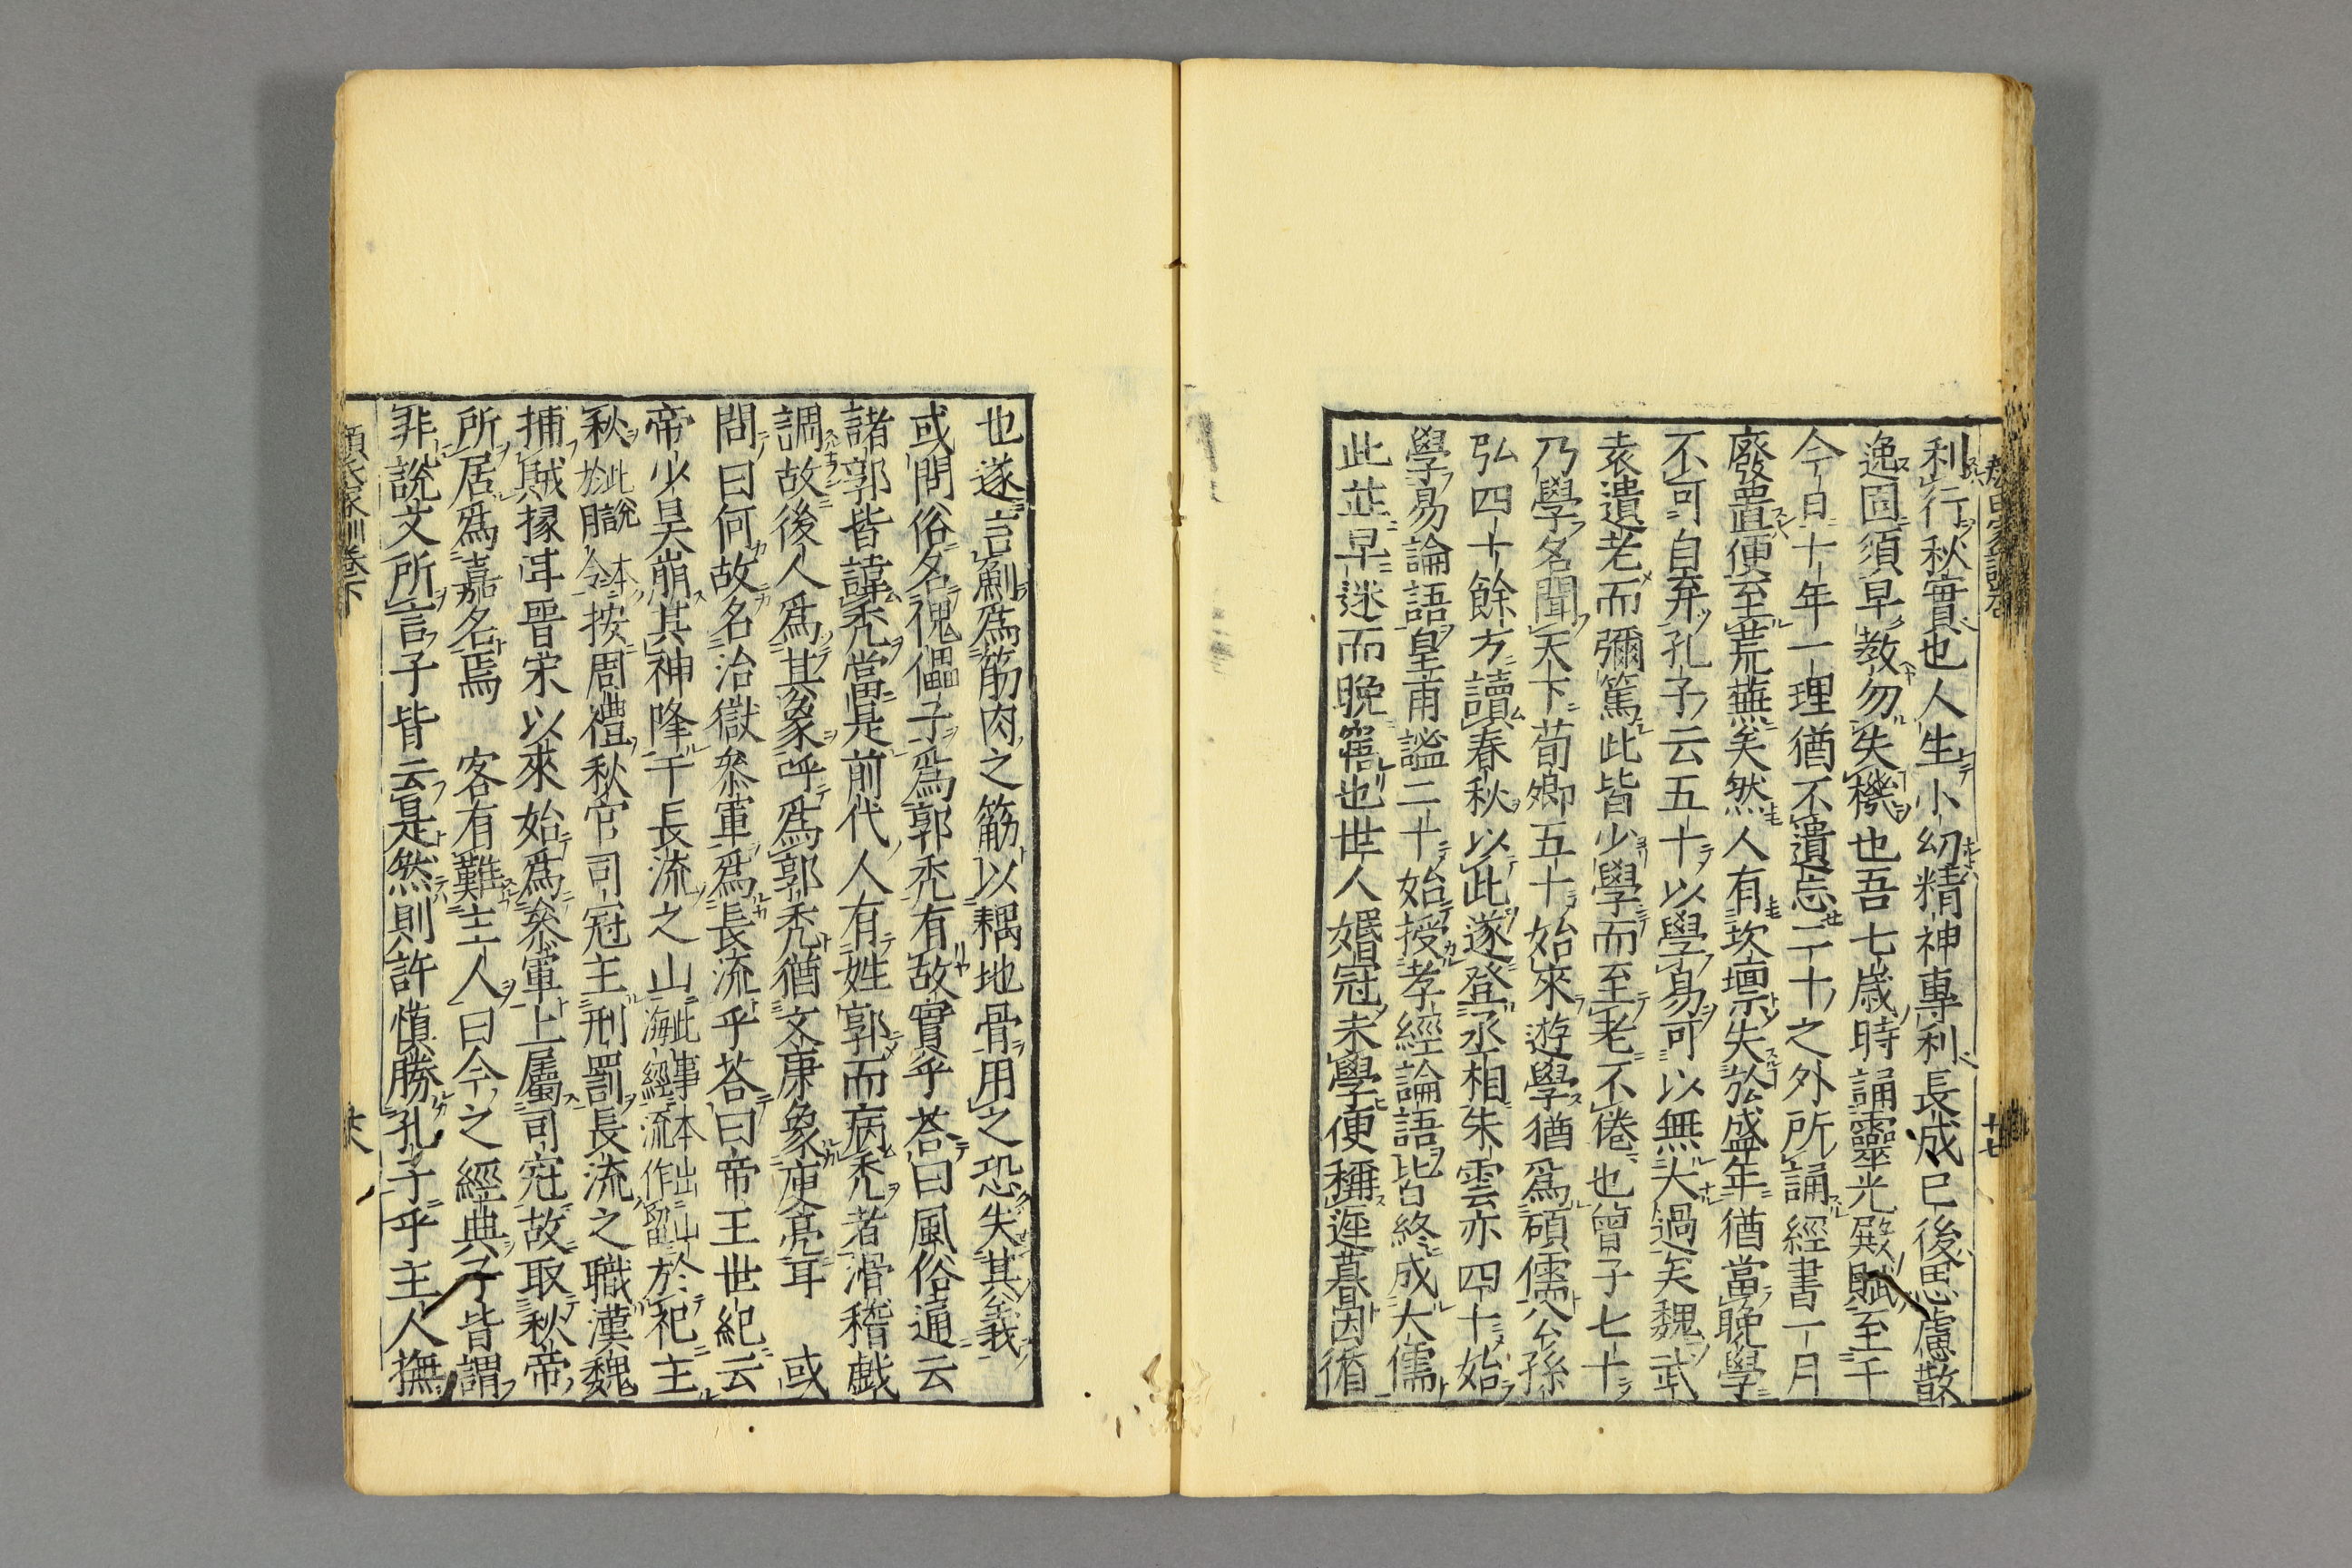 利行秋實也人生小幼精神專利長成已後思慮散
逸固須早教勿失機也吾七歲時誦靈光殿賦至于
今日十年一理猶不遺忘二十之外所誦經書一月
廢置便至荒蕪矣然人有坎壈失於盛年猶當晚學
不可自弃孔子云五十以學易可以無大過矣魏武
袁遺老而彌篤此皆少學而至老不倦也曾子七十
乃學名聞天下荀卿五十始來遊學猶爲碩儒公孫
弘四十餘方讀春秋以此遂登丞相朱雲亦四十始
學易論語皇甫謐二十始授孝經論語皆終成大儒
此並早迷而晚寤也世人婚冠未學便稱遲暮因循
也遂言劁爲筋肉之筋以耦地骨用之恐失其義
或問俗名傀儡子爲郭禿有故實乎荅曰風俗通云
諸郭皆諱禿當是前代人有姓郭而病禿者滑稽戲
調故後人爲其象呼爲郭禿猶文康象庾亮耳 或
問曰何故名治獄參軍爲長流乎荅曰帝王世紀云
帝少昊崩其神降于長流之山此事本出山海經流作留於祀主
秋此說本於月令按周禮秋官司冠主刑罰長流之職漢魏
捕賊掾耳晉宋以來始爲參軍上屬司冦故取秋帝
所居爲嘉名焉 客有難主人曰今之經典子皆謂
非說文所言子皆云是然則許慎勝孔子乎主人撫
顏氏家訓卷下